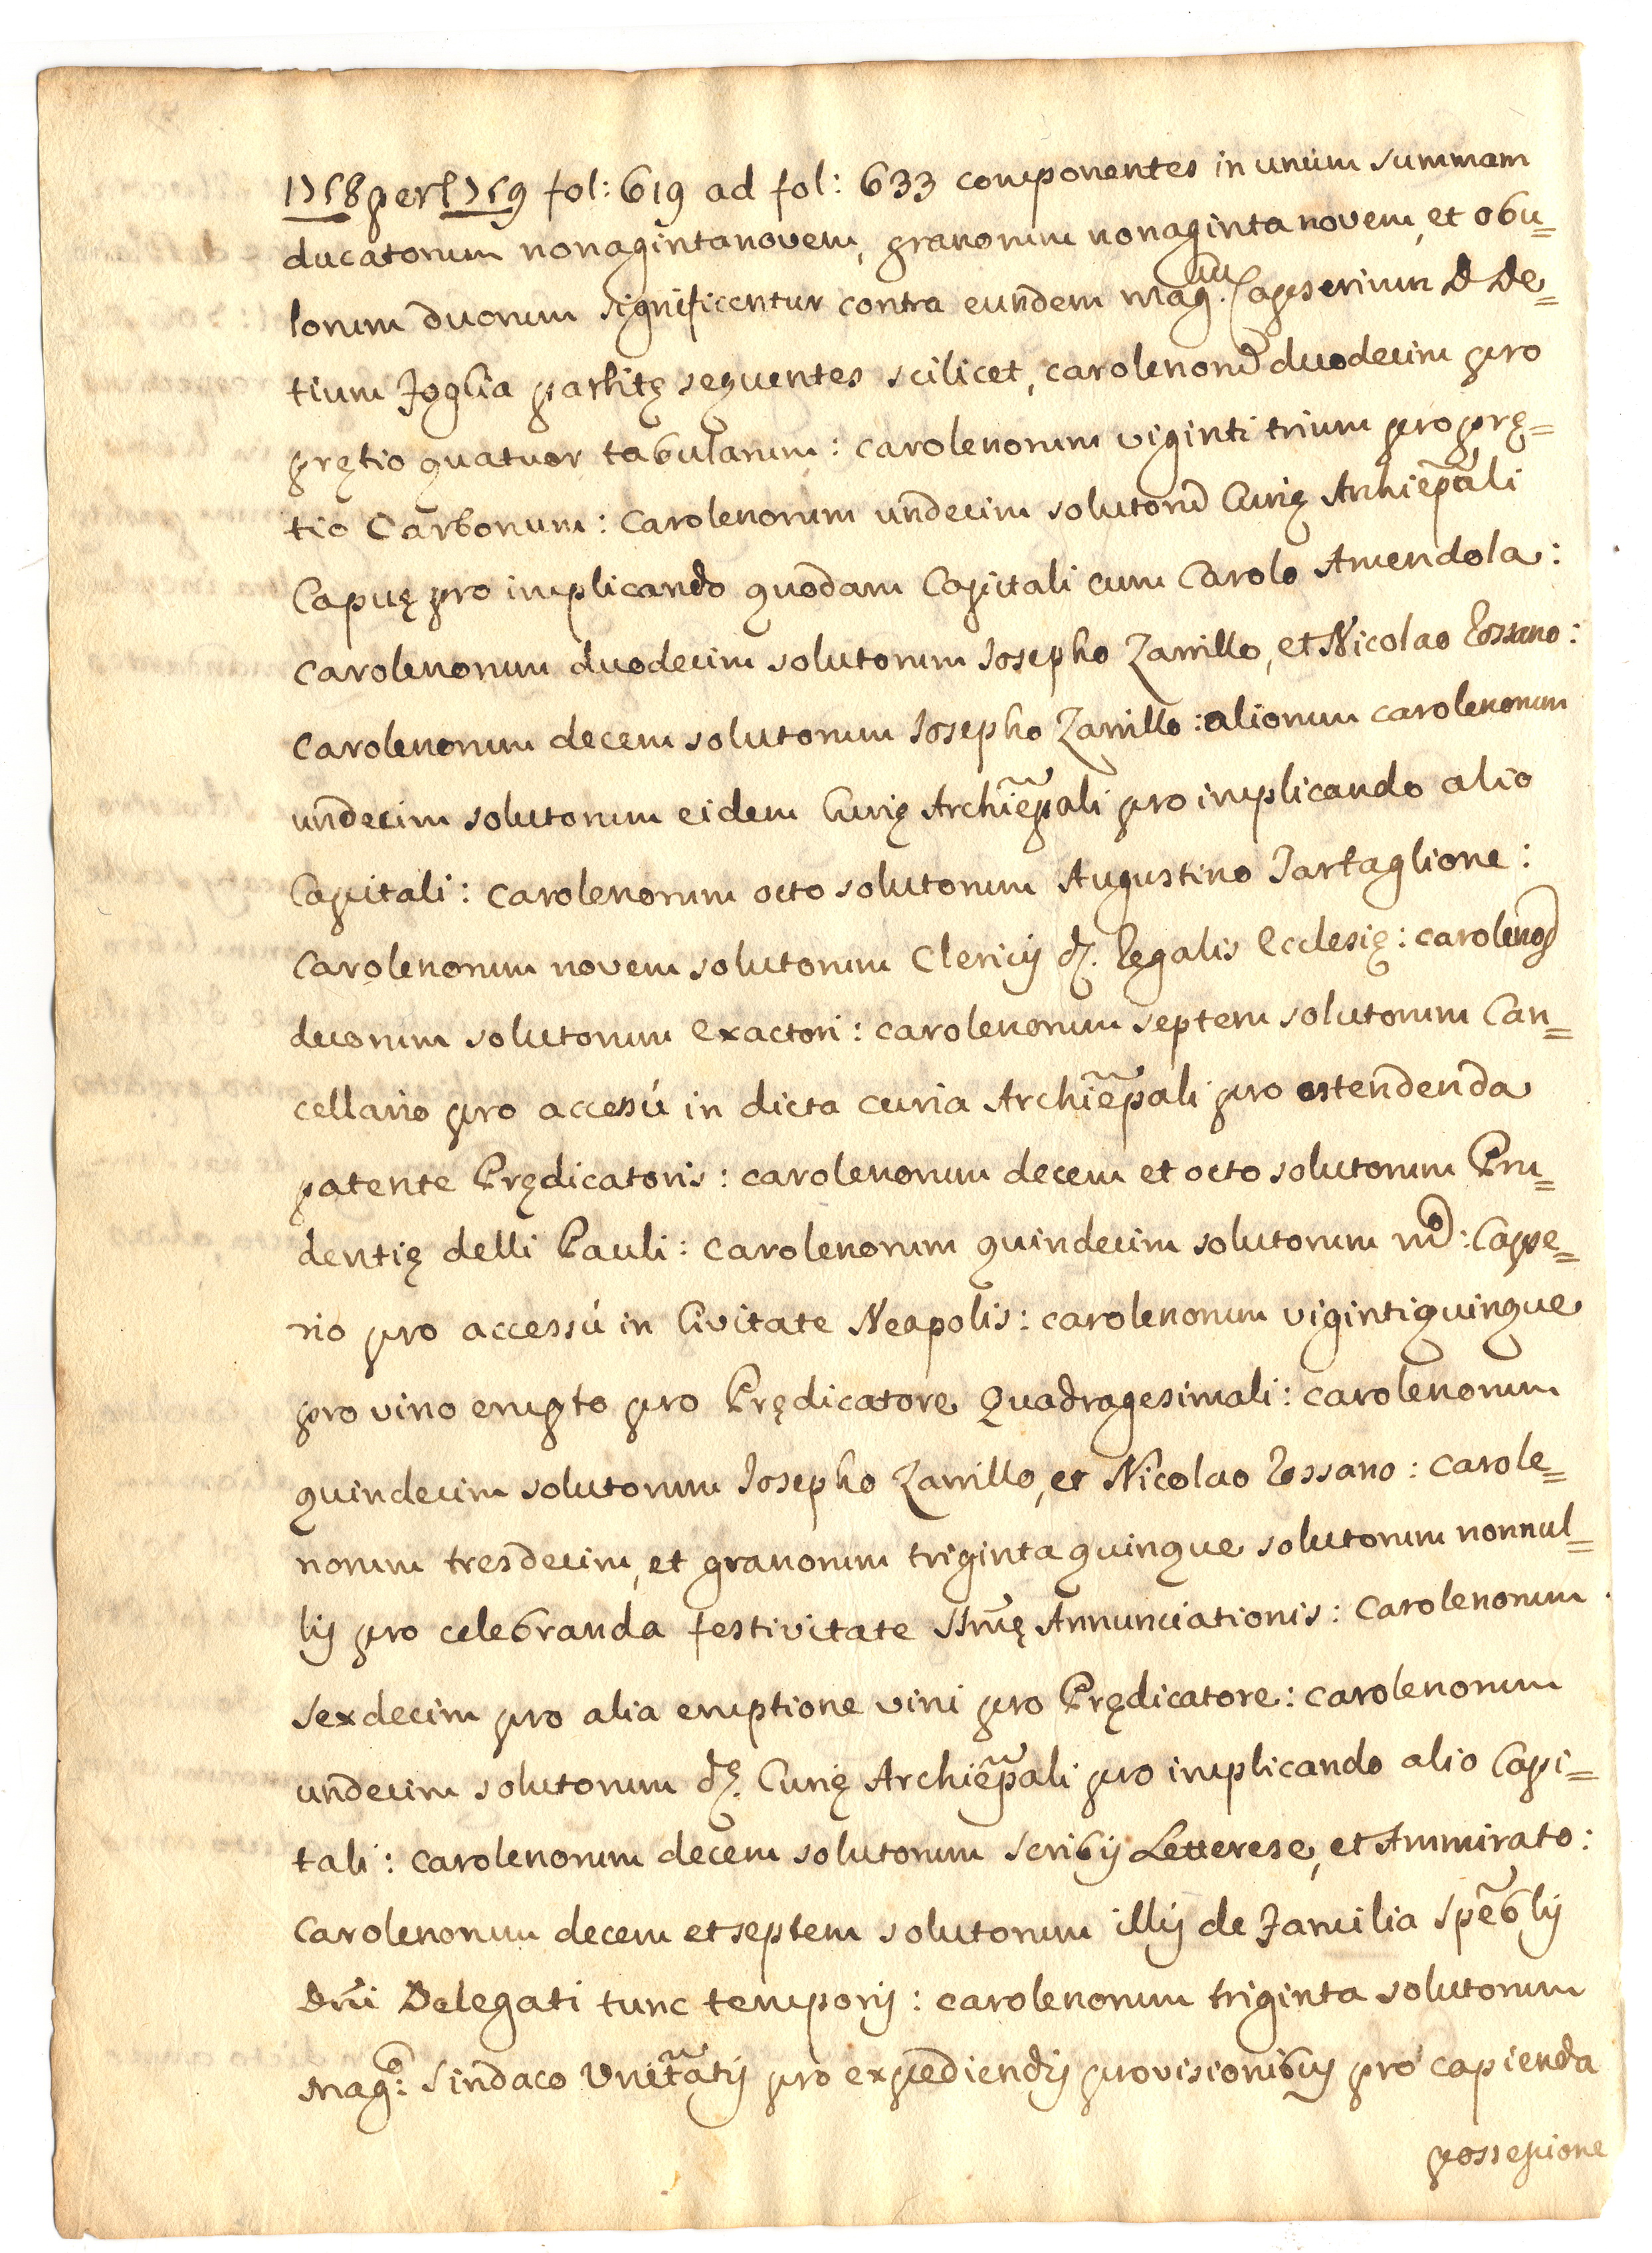 1758 per 1759 fol: 619 ad fol: 633 componentes in unùm summam
ducatorum nonagintanovem, granorum nonaginta novem, et obu=
lorum duorum significentur contra eundem mag.um Capserium D. De=
tium Foglia partitę sequentes scilicet, carolenorũ duodecim pro
prętio quatuor tabularum: carolenorum viginti trium pro prę=
tio Carbonum: Carolenorum undecim solutorũ Curię Archiẽpali
Capuę pro implicando quodam Capitali cum Carolo Amendola:
Carolenorum duodecim solutorum Iosepho Zarrillo, et Nicolao Rossano:
Carolenorum decem solutorum Iosepho Zarrillo: aliorum carolenorum
undecim solutorum eidem Curię Archiẽpali pro implicando alio
Capitali: Carolenorum octo solutorum Augustino Tartaglione:
Carolenorum novem solutorum Clericij d. Regalis Ecclesię: carolenoȓ
duorum solutorum exactori: carolenorum septem solutorum Can=
cellario pro accesú in dicta curia Archiẽpali pro ostendenda
patente Prędicatoris: carolenorum decem et octo solutorum Pru=
dentię delli Pauli: carolenorum quindecim solutorum mõ: Capse=
rio pro accessú in Civitate Neapolis: carolenorum vigintiquinque
pro vino empto pro Prędicatore Quadragesimali: carolenorum
quindecim solutorum Iosepho Zarrillo, et Nicolao Rossano: carole=
norum tresdecim, et granorum triginta quinque solutorum nonnul=
lij pro celebranda festivitate SSmę Annunciationis: Carolenorum
sexdecim pro alia emptione vini pro Prędicatore: carolenorum
undecim solutorum d.ę Curię Archiẽpali pro implicando alio Capi=
tali: carolenorum decem solutorum scribij Letterese, et Ammirato:
Carolenorum decem et septem solutorum illij de Familia Spẽblij
Dñi Delegati tunc temporij: carolenorum triginta solutorum
Mag:o Sindaco Unitãtij pro expediendij provisionibuj pro capienda
possessione